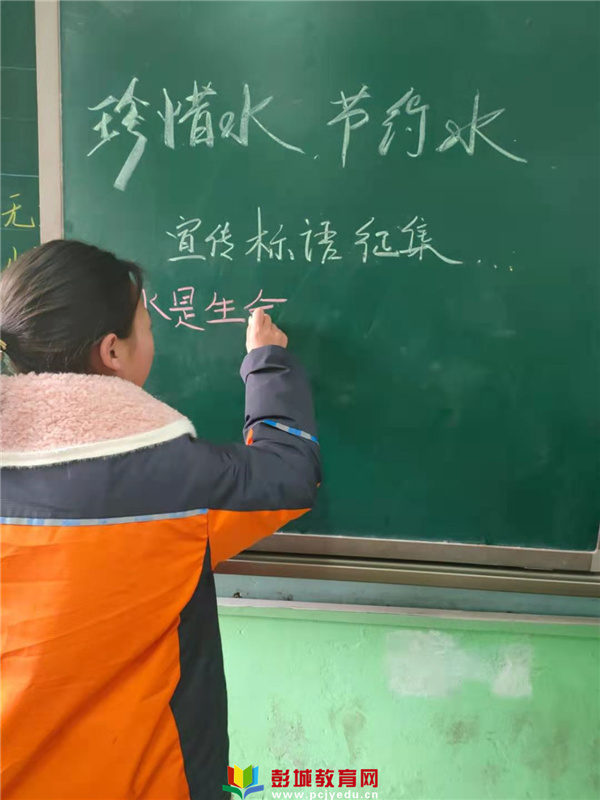 珍惜水、节约水
宣传标语征集...
水是生命
无
彭城教育网
www.pcjyedu.cn